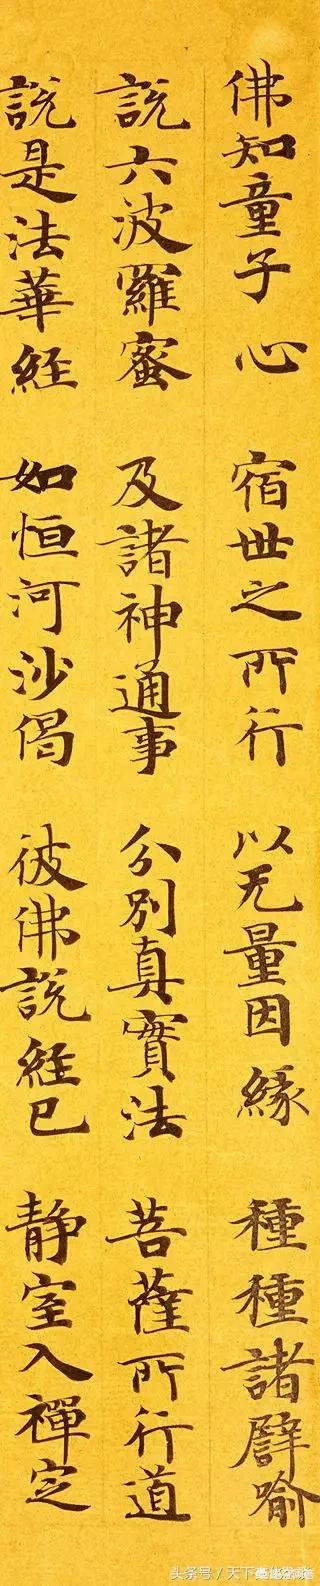 佛知童子心 宿世之所行 以无量因緣 種種諸譬喻
說六波羅蜜 及諸神通事 分別真實法 菩薩所行道
說是法華經 如恒河沙偈 彼佛說經已 静室入禪定
头条号